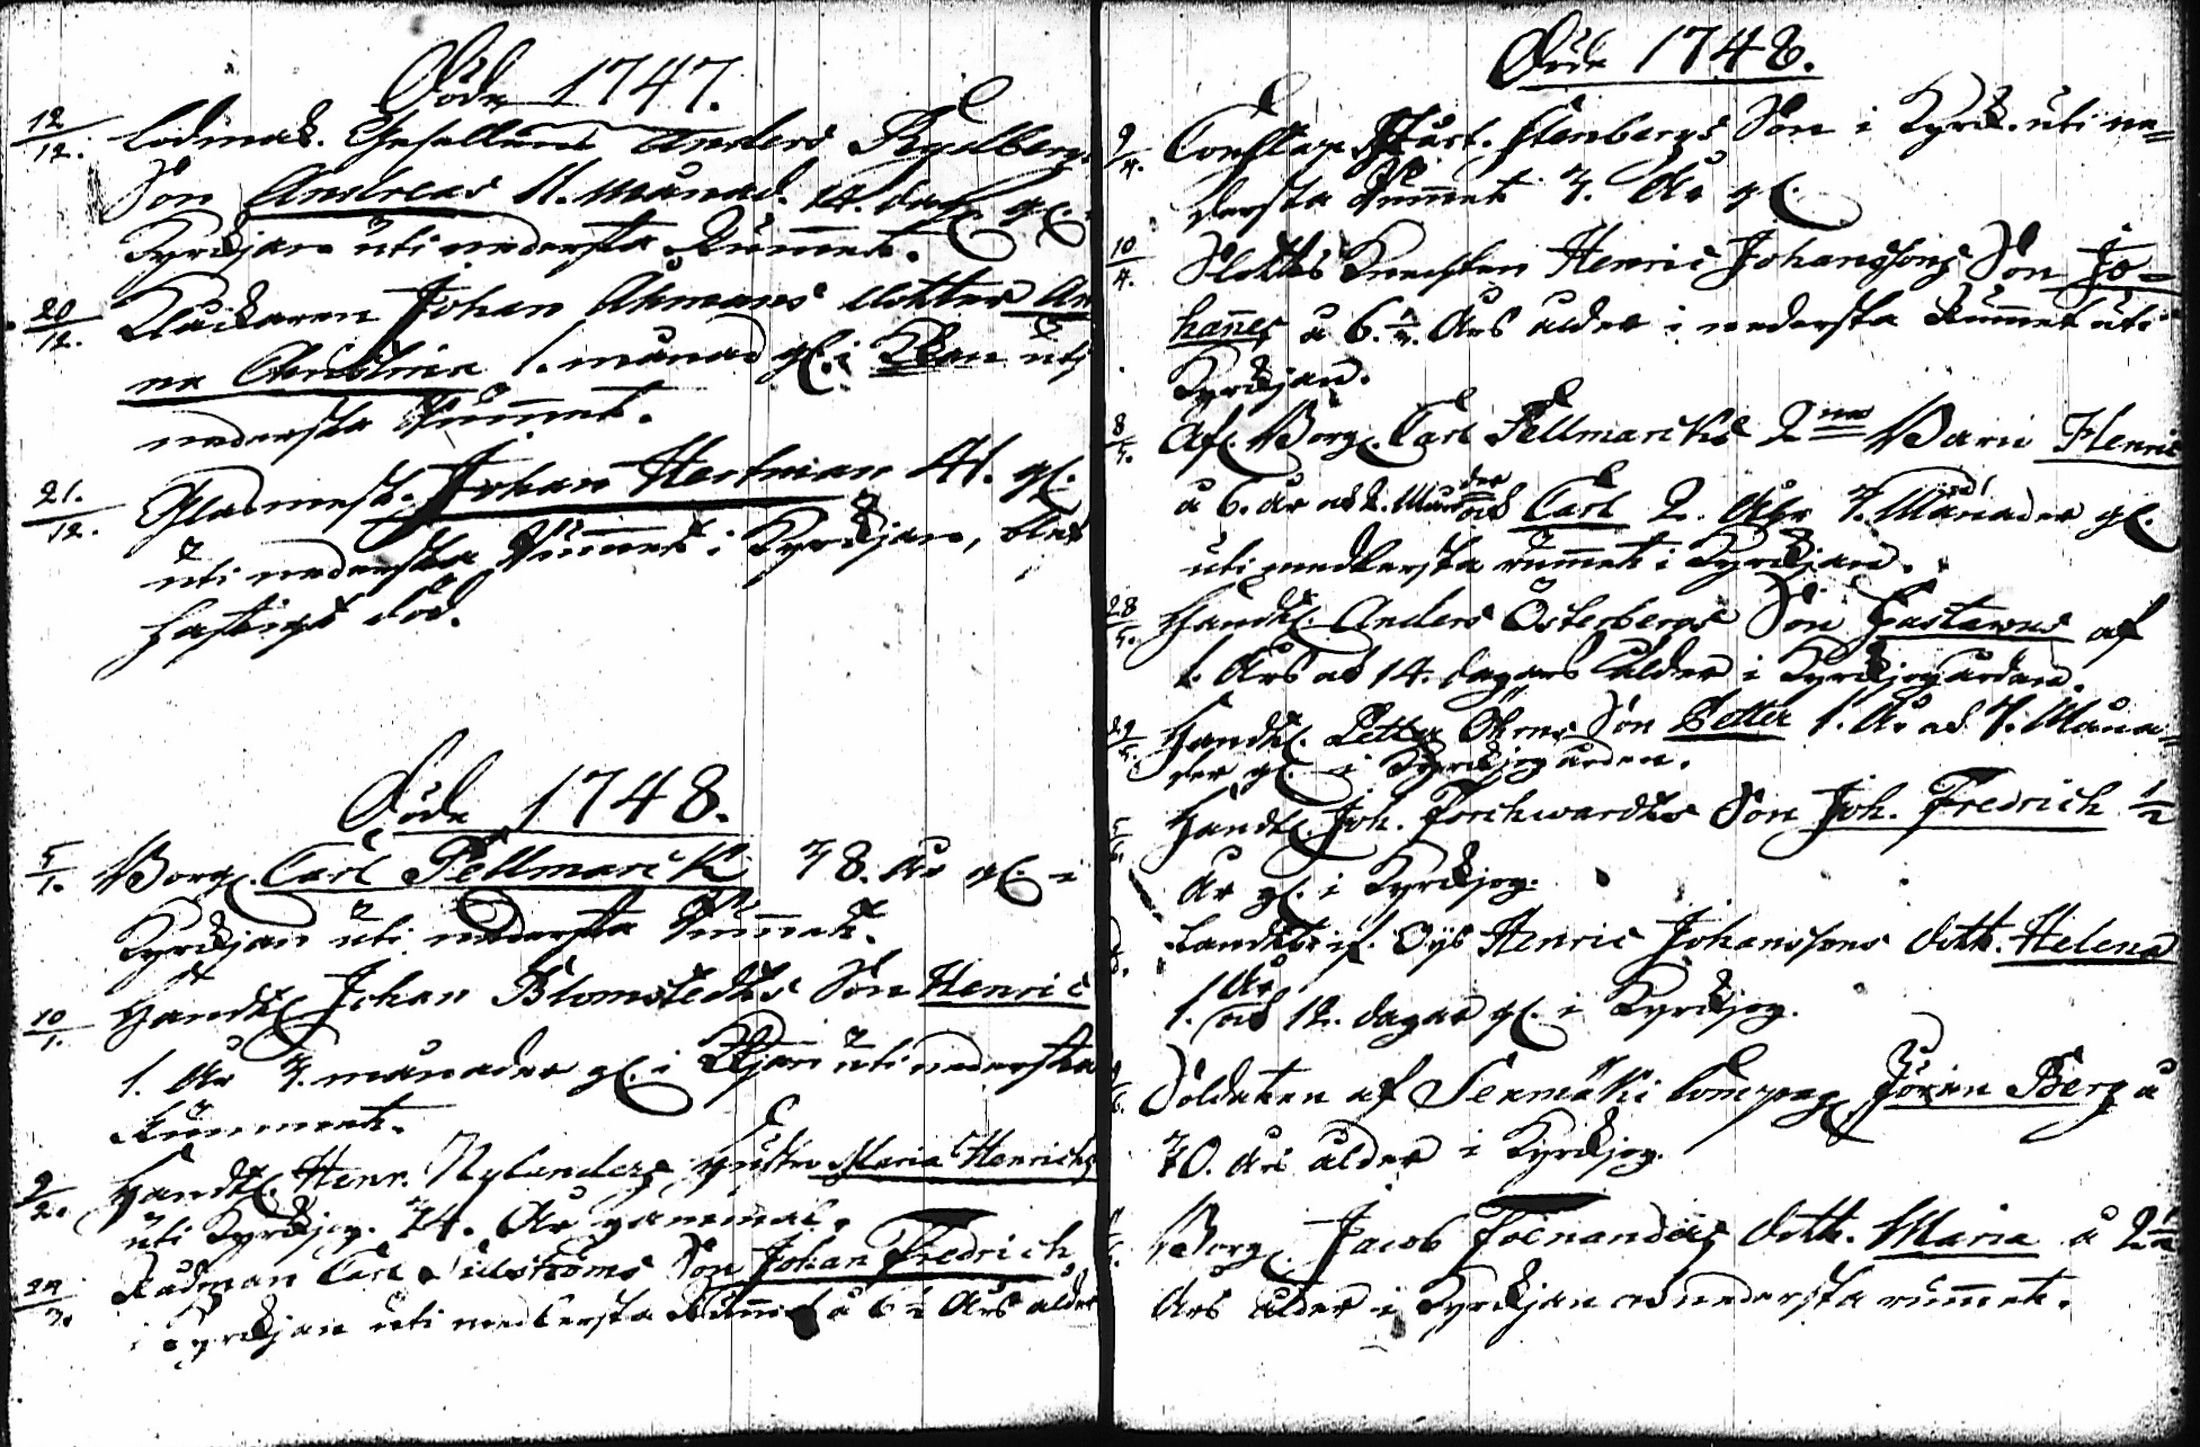 Döde 1747.
12/12. Lodmak. Gesellens Anders Rydbergs
Son Andreas 11. månad. 14. dag. gl. i
Kyrckjan uti nedersta Rummet.
20/12. Kläckaren Johan Åhmans dotter An
na Christina 1. månad gl. i Kkan uti
nedersta Rummet.
21./12. Glasmest. Johan Hertman 41. gl.
uti nedersta Rummet i Kyrckjan, blef
hastigt död.
Döde 1748.
5/1. Borg. Carl Fellmarck 78. År gl. i
Kyrckjan uti nedersta Rummet.
10/1. Handl. Johan Blomstedts Son Henric
1. År 7. månader gl. i Kkjan uti nedersta
Rummet.
9/2. Handl. Henr. Nylunders hustru Maria Henrichs
uti Kyrckjog. 74. År gammal.
Rådman Carl Son Johan Fredrich,
i Kyrckjan uti medlersta Rummet å 6 1/2 Års ålder
Döde 1748.
9/4. Stenbergs Son i Kyrck. uti ne=
dersta Rummet 7. År gl.
10/4. Slotts Knechten Henric Johanssons Son Jo=
hannes å 6. 1/2. Års ålder i nedersta Rummet uti
Kyrckjan.
8/5. Afl. Borg. Carl Fellmarcks 2ne Barn Henric
å 6. år och 2. Månader och Carl 2. Åhr 7. Månader gl.
uti medlersta rummet i Kyrckjan.
28/5. Handl. Anders Österbergs Son Gustavus af
1. Års och 14. dagars ålder i Kyrckjogården.
29/5. Handl. Petter Öhms Son Petter 1. År och 7. Måna=
der gl. i Kyrckjogården.
Handl. Joh. Son Joh. Fredrich 1/2
År gl. i Kyrckjog.
Henric Johanssons dott. Helena
1. År och 12. dagar gl. i Kyrckjog.
Soldaten af Sexmäki Compag. Jöran Berg å
70. Års ålder i Kyrckjog.
Borg. Jacob dott. Maria å 2 1/2
Års ålder i Kyrckjan och nedersta rummet.